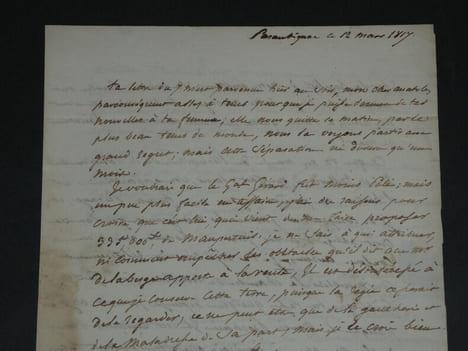 ce 12 mars 1817.
ta lettre du 7 m'est parvenue hier au soir, mon cher
par conséquent assez à tems pour que je puisse donner de tes
nouvelles à ta femme, elle nous quitte ce matin, par le
plus beau tems du monde, nous la voyons partir avec
grand regret; mais cette séparation ne durera qu'un
mois.
Je voudrais que le Gal Gérard fut moins poli; mais
un peu plus facile en affaire, j'ai de raisons pour
croire que c'est lui qui vient de me faire proposer
de Maupertuis, je ne sais à quoi attribuer
ni comment les obstacles qu'il dit que mr
de la apport à la vente, il est
ce que je conserve cette terre, puisque la
de la regarder, ce ne peut être que de la gaucherie et
de la maladresse de sa part; mais je le crois bien